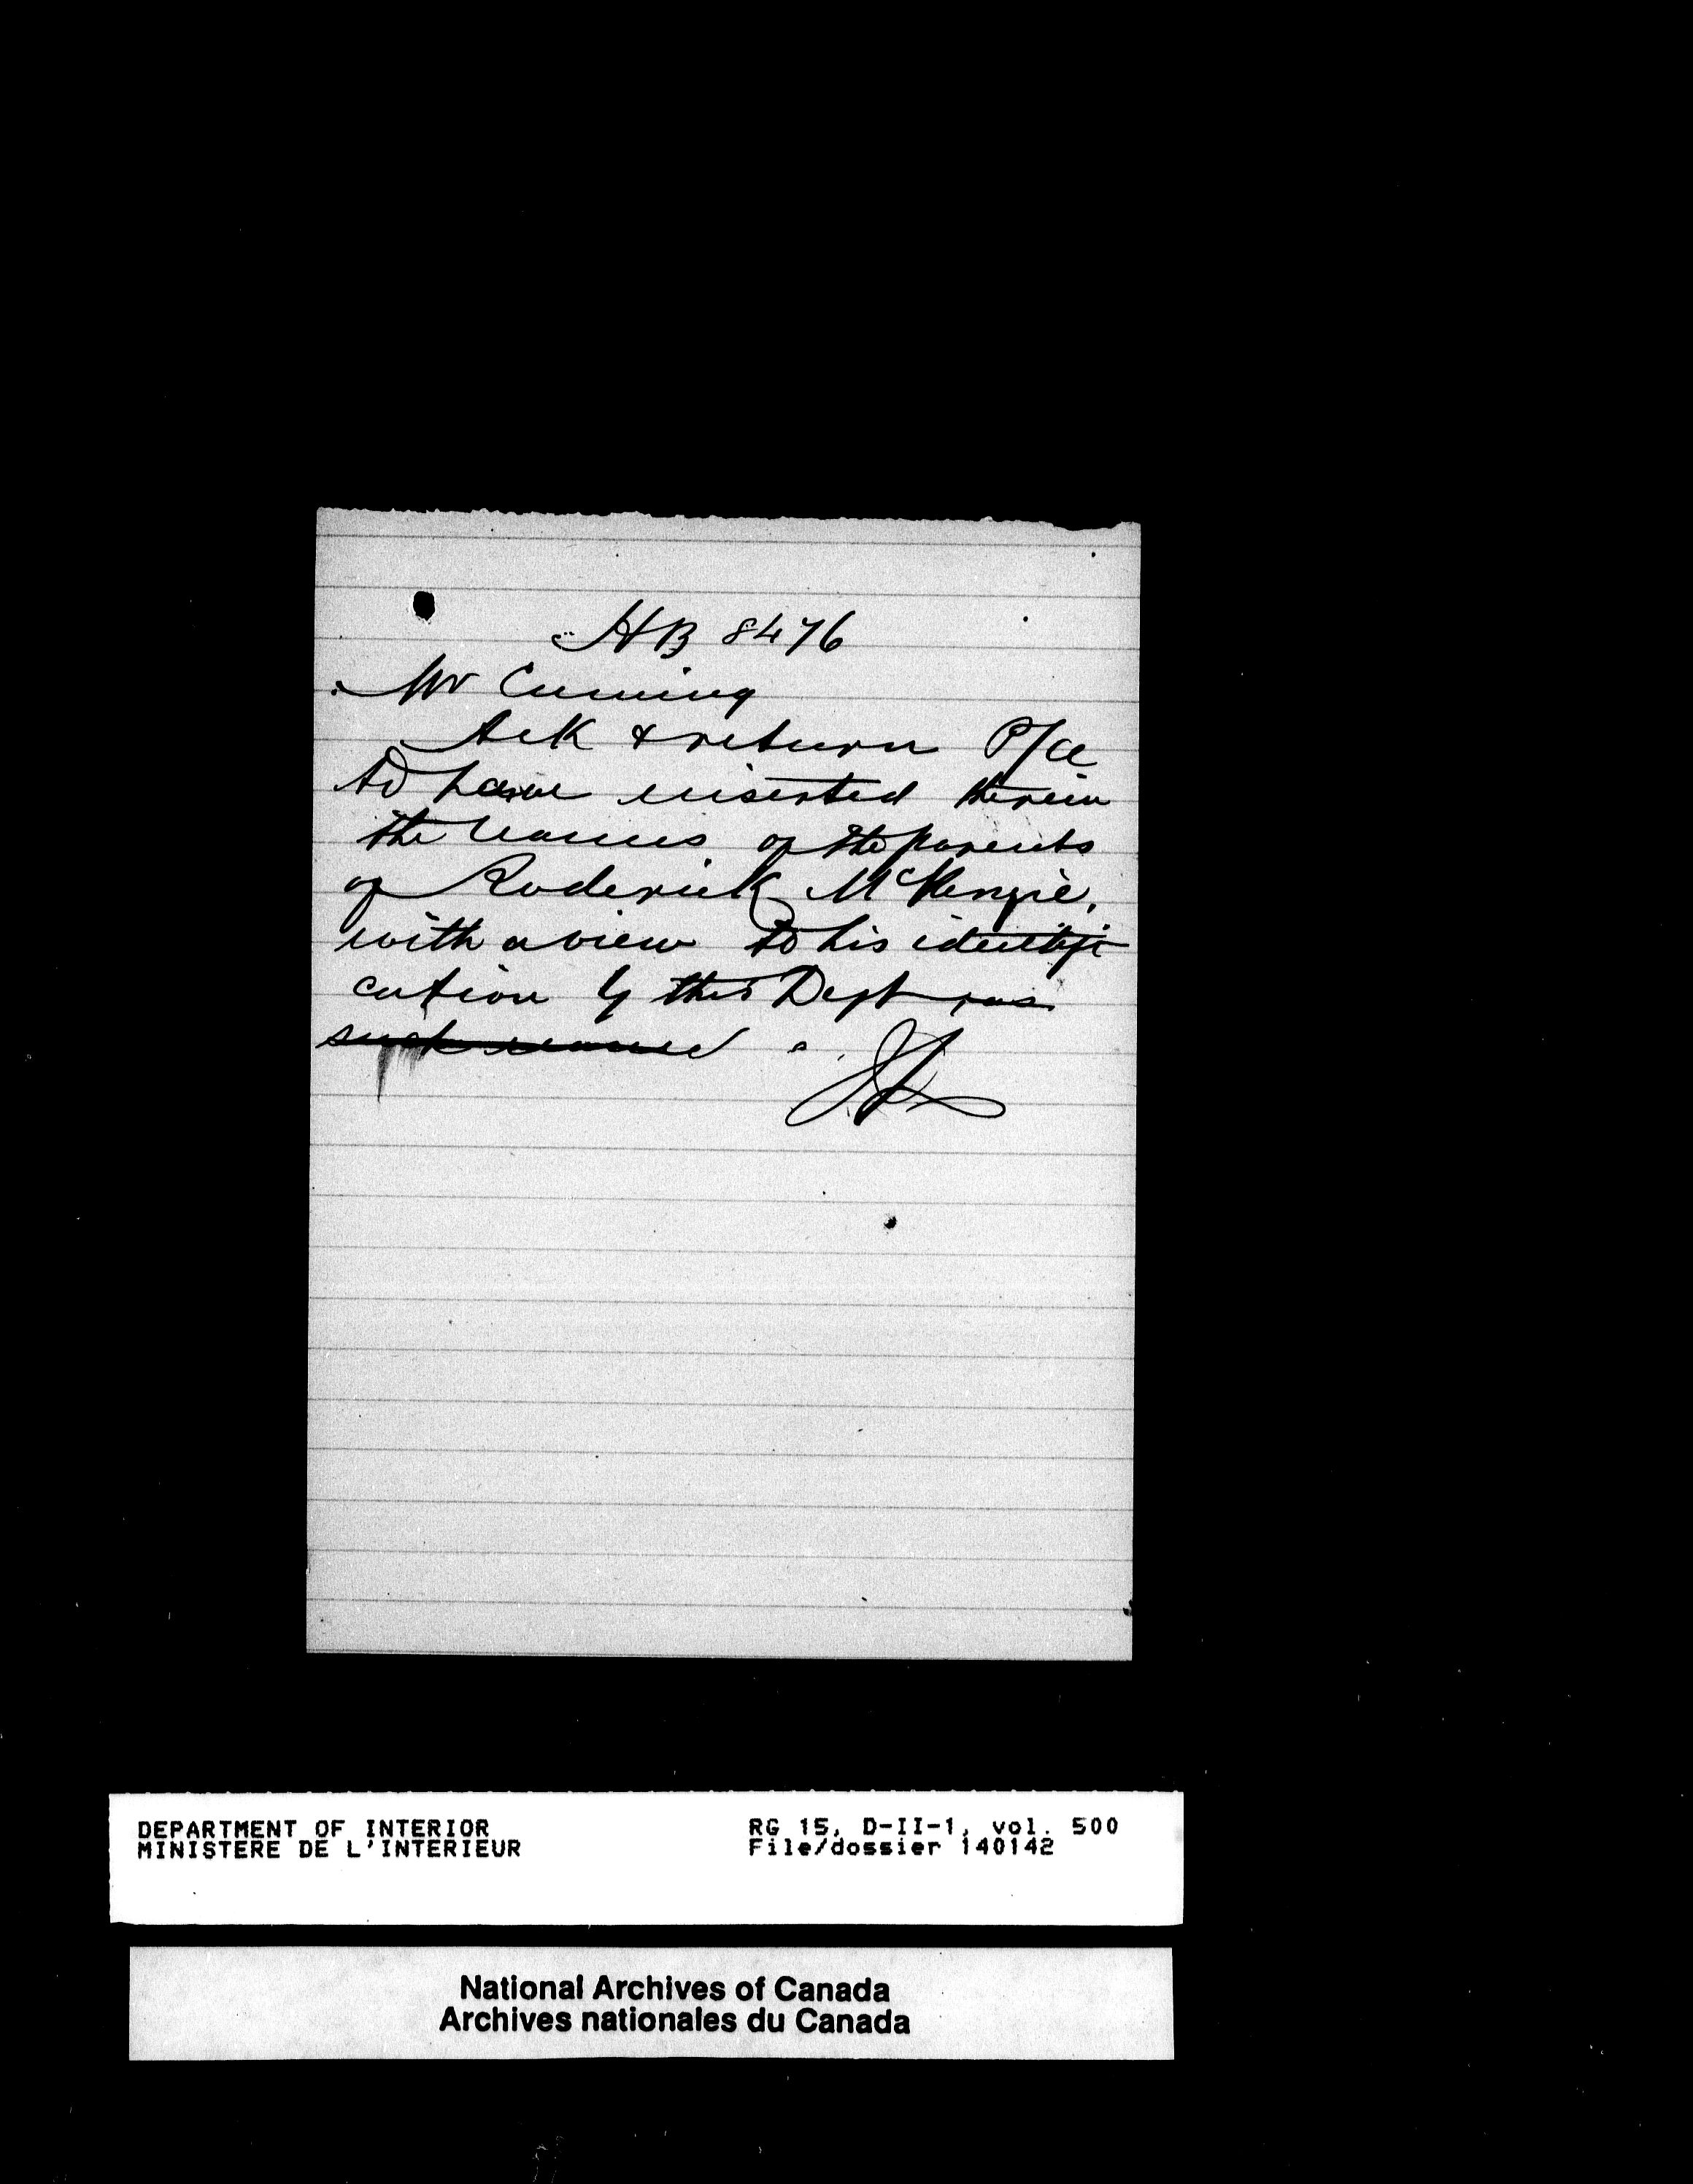 HB 8476
Mr Cuming
Ack & return P/A
to have inserted therein
the names of the parents
of Roderick McKenzie,
with a view to his identifi
cation by this Dept as
such
DEPARTMENT OF INTERIOR
MINISTERE DE L'INTERIEUR
RG 15, D-II-1, vol. 500
File/dossier 140142
National Archives of Canada
Archives nationales du Canada